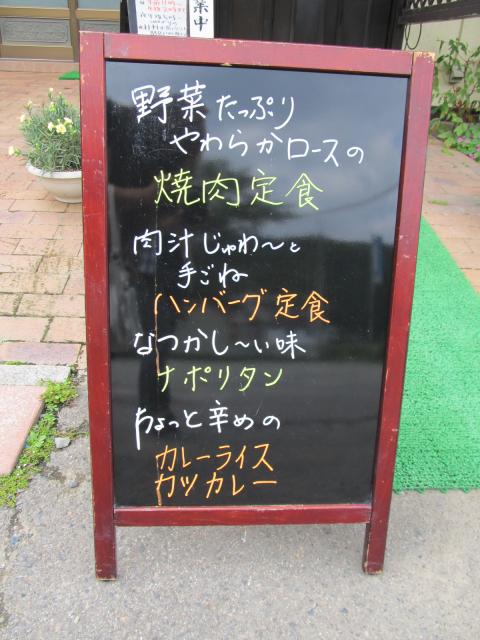 業中
野菜たっぷり
やわらかロースの
焼肉定食
肉汁じゅわ〜と
手ごね
ハンバーグ定食
なつかし〜い味
ナポリタン
ちょっと辛めの
カレーライス
カツカレー